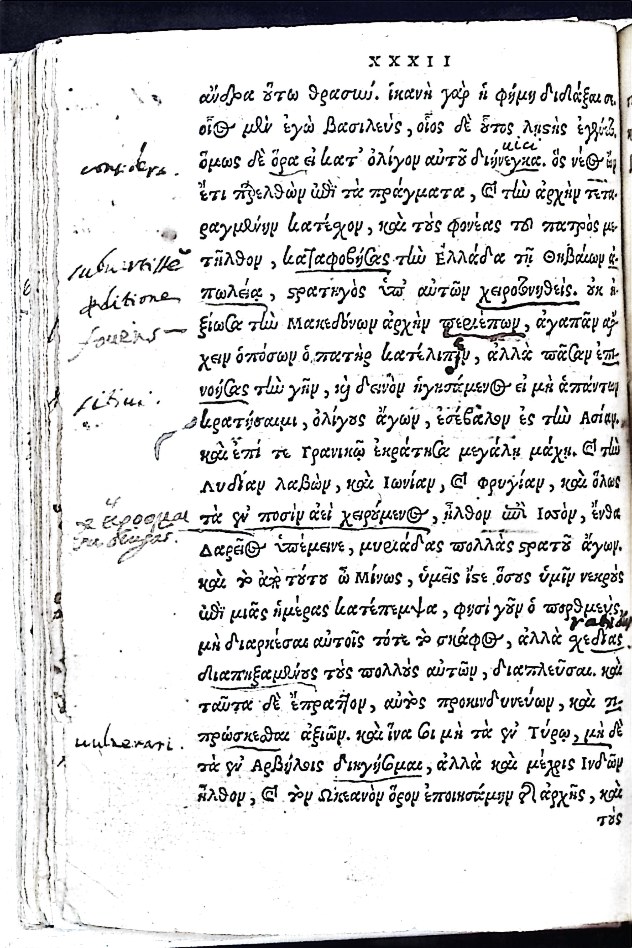 XXXII
ἄνδρα οὕτω θρασιώ. ἱκανὴ γὰρ ἡ φήμη διδάξαι σε,
οἷος μὲν ἐγὼ βασιλεὺς, οἷος δὲ οὗτος λῃστὴς ἐγένετο.
vici
considera.
ὅμως δὲ ὅρα εἰ κατ' ὀλίγον αὐτοῦ διήνεγκα. ὃς νέος ὢν
ἔτι παρελθὼν ἐπὶ τὰ πράγματα, καὶ τὴν ἀρχὴν τετα-
ραγμένην κατέσχον, καὶ τοὺς φονέας τοῦ πατρὸς με-
τῆλθον, καταφοβήσας τὴν Ἑλλάδα τῇ Θηβαίων ἀ-
πωλείᾳ, στρατηγὸς ὑπ' αὐτῶν χειροτονηθείς. οὐκ ἠ-
perditione
ξίωσα τὴν Μακεδόνων ἀρχὴν περιέπων, ἀγαπᾶν ἄρ-
χειν ὁπόσων ὁ πατὴρ κατέλιπεν, ἀλλὰ πᾶσαν ἐπι-
νοήσας τὴν γῆν, καὶ δεινὸν ἡγησάμενος εἰ μὴ ἁπάντων
κρατήσαιμι, ὀλίγους ἄγων, ἐσέβαλον ἐς τὴν Ἀσίαν.
καὶ ἐπί τε Γρανικῷ ἐκράτησα μεγάλῃ μάχῃ. καὶ τὴν
Λυδίαν λαβὼν, καὶ Ἰωνίαν, καὶ Φρυγίαν, καὶ ὅλως
τὰ ἐν ποσὶν ἀεὶ χειρούμενος, ἦλθον ἐπὶ Ἰσσὸν, ἔνθα
Δαρεῖος ὑπέμεινε, μυριάδας πολλὰς στρατοῦ ἄγων.
καὶ τὸ ἀπὸ τούτου ὦ Μίνως, ὑμεῖς ἴστε ὅσους ὑμῖν νεκροὺς
ἐπὶ μιᾶς ἡμέρας κατέπεμψα, φησὶ γοῦν ὁ πορθμεὺς,
μὴ διαρκέσαι αὐτοῖς τότε τὸ σκάφος, ἀλλὰ σχεδίας
διαπηξαμένους τοὺς πολλοὺς αὐτῶν, διαπλεῦσαι. καὶ
ταῦτα δὲ ἔπραττον, αὐτὸς προκινδυνεύων, καὶ τι-
vulnerari.
τρώσκεσθαι ἀξιῶν. καὶ ἵνα σοι μὴ τὰ ἐν Τύρῳ, μὴ δὲ
τὰ ἐν Ἀρβήλοις διηγήσωμαι, ἀλλὰ καὶ μέχρις Ἰνδῶν
ἦλθον, καὶ τὸν Ὠκεανὸν ὅρον ἐποιησάμην τῆς ἀρχῆς, καὶ
τοὺς